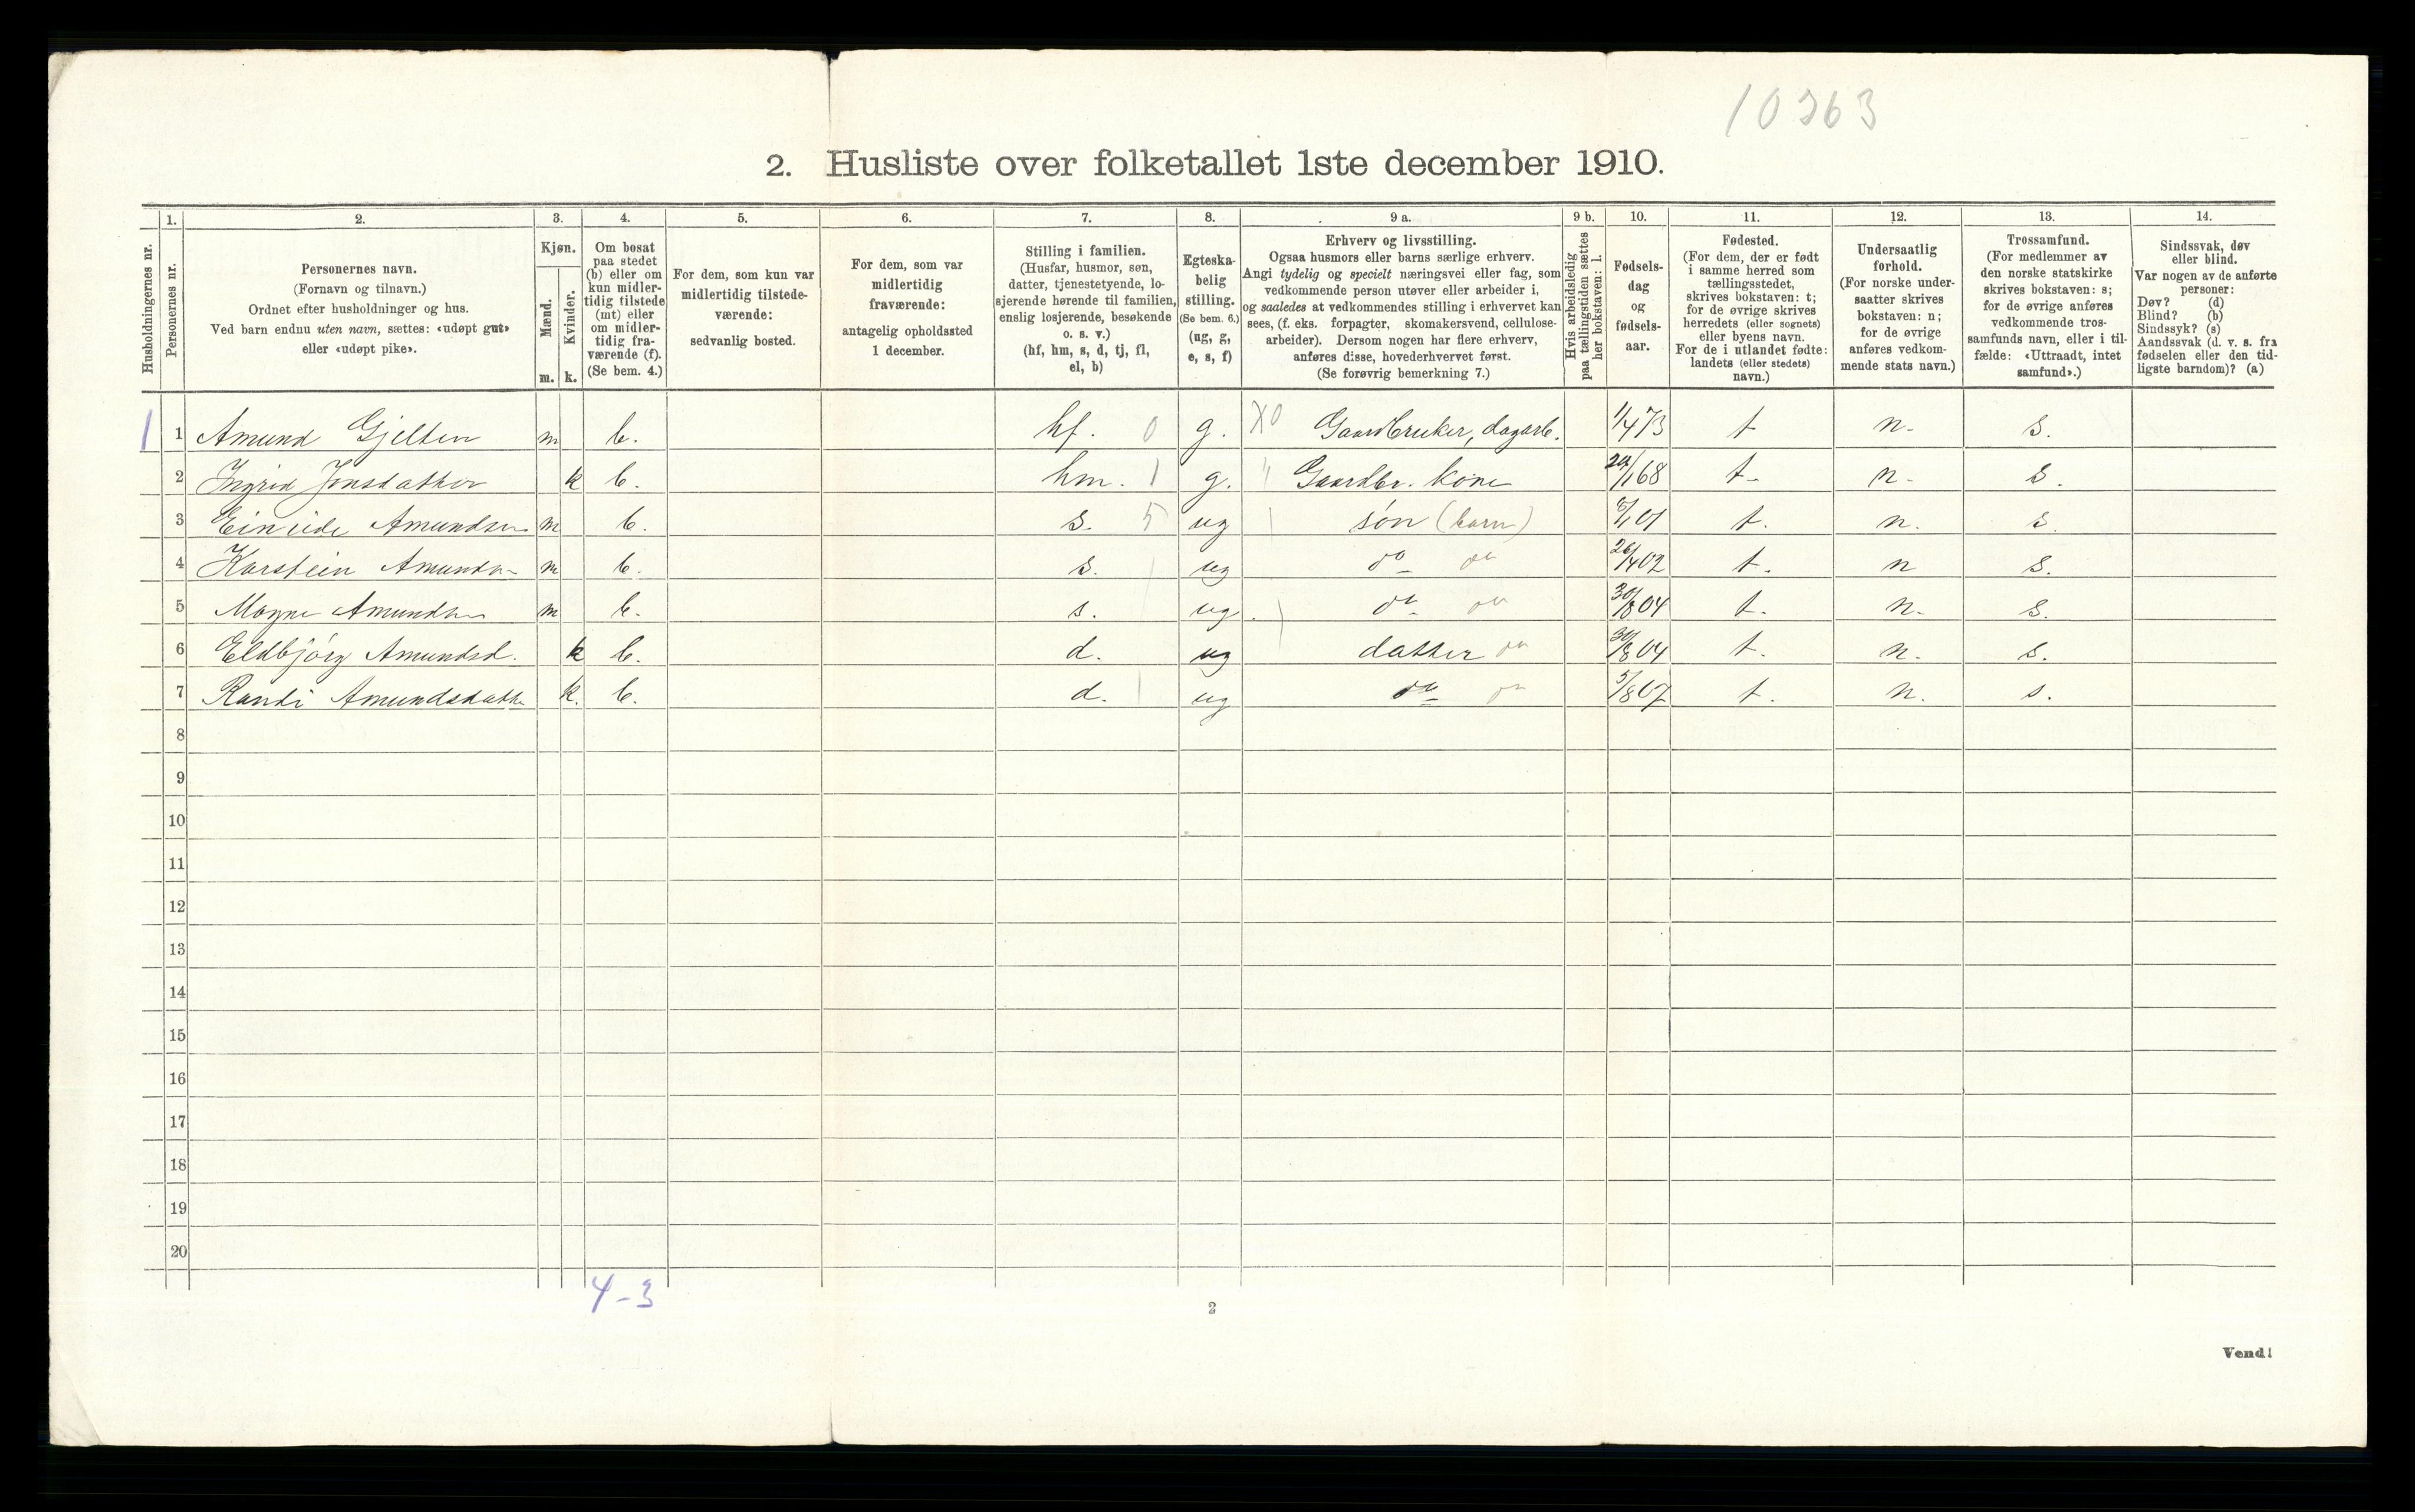 10363
2. Husliste over folketallet 1ste december 1910.
Husholdningernes nr.
1. Personernes nr.
2. Personernes navn. (Fornavn og tilnavn.) Ordnet efter husholdninger og hus. Ved barn endnu uten navn, sættes: «udøpt gut» eller «udøpt pike».
3. Kjøn. Mænd. m. Kvinder. k.
4. Om bosat paa stedet (b) eller om kun midlertidig tilstede (mt) eller om midlertidig fraværende (f). (Se bem. 4.)
5. For dem, som kun var midlertidig tilstedeværende: sedvanlig bosted.
6. For dem, som var midlertidig fraværende: antagelig opholdssted 1 december.
7. Stilling i familien. (Husfar, husmor, søn, datter, tjenestetyende, losjerende hørende til familien, enslig losjerende, besøkende o. s. v.) (hf, hm, s, d, tj, fl, el, b)
8. Egteskabelig stilling. (Se bem. 6.) (ug, g, e, s, f)
9 a. Erhverv og livsstilling. Ogsaa husmors eller barns særlige erhverv. Angi tydelig og specielt næringsvei eller fag, som vedkommende person utøver eller arbeider i, og saaledes at vedkommendes stilling i erhvervet kan sees, (f. eks. forpagter, skomakersvend, cellulosearbeider). Dersom nogen har flere erhverv, anføres disse, hovederhvervet først. (Se forøvrig bemerkning 7.)
9 b. Hvis arbeidsledig paa tællingstiden sættes her bokstaven: l.
10. Fødselsdag og fødselsaar.
11. Fødested. (For dem, der er født i samme herred som tællingsstedet, skrives bokstaven: t; for de øvrige skrives herredets (eller sognets) eller byens navn. For de i utlandet fødte: landets (eller stedets) navn.)
12. Undersaatlig forhold. (For norske undersaatter skrives bokstaven: n; for de øvrige anføres vedkommende stats navn.)
13. Trossamfund. (For medlemmer av den norske statskirke skrives bokstaven: s; for de øvrige anføres vedkommende trossamfunds navn, eller i tilfælde: «Uttraadt, intet samfund».)
14. Sindssvak, døv eller blind. Var nogen av de anførte personer: Døv? (d) Blind? (b) Sindssyk? (s) Aandssvak (d. v. s. fra fødselen eller den tidligste barndom)? (a)
1 1 Amund Gjelten m b. hf. 0 g. X0 Gaardbruker, dagarb. 1/4 73 t n. s.
2 Ingrid Jonsdatter k b. hm. 1 g. " Gaardbr. kone 29/1 68 t. n. s.
3 Einride Amundsen m b. s. 5 ug søn (barn) 8/1 01 t. n. s.
4 Karstein Amunds m b. s. ug do do 26/4 02 t. n s.
5 Magne Amunds m b. s. ug. do do 30/8 04 t. n. s.
6 Eldbjørg Amundsd. k b. d. ug datter do 30/8 04 t. n. s.
7 Randi Amundsdatt k. b. d. ug do do 5/8 07 t. n. s.
8
9
10
11
12
13
14
15
16
17
18
19
20
4-3
2
Vend!